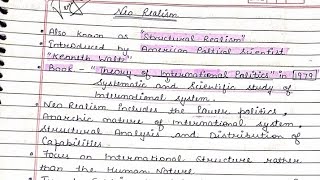 Neo Realism
• Also known as "Structural Realism"
• Introduced by American Political Scientist
"Kenneth Waltz"
• Book - "Theory of International Politics" in 1979
Systematic and Scientific study of
International system.
• Neo Realism includes the Power politics,
Anarchic nature of International system
Structural Analysis and Distribution of
Capabilities.
• Focus on International Structure rather
than the Human Nature.